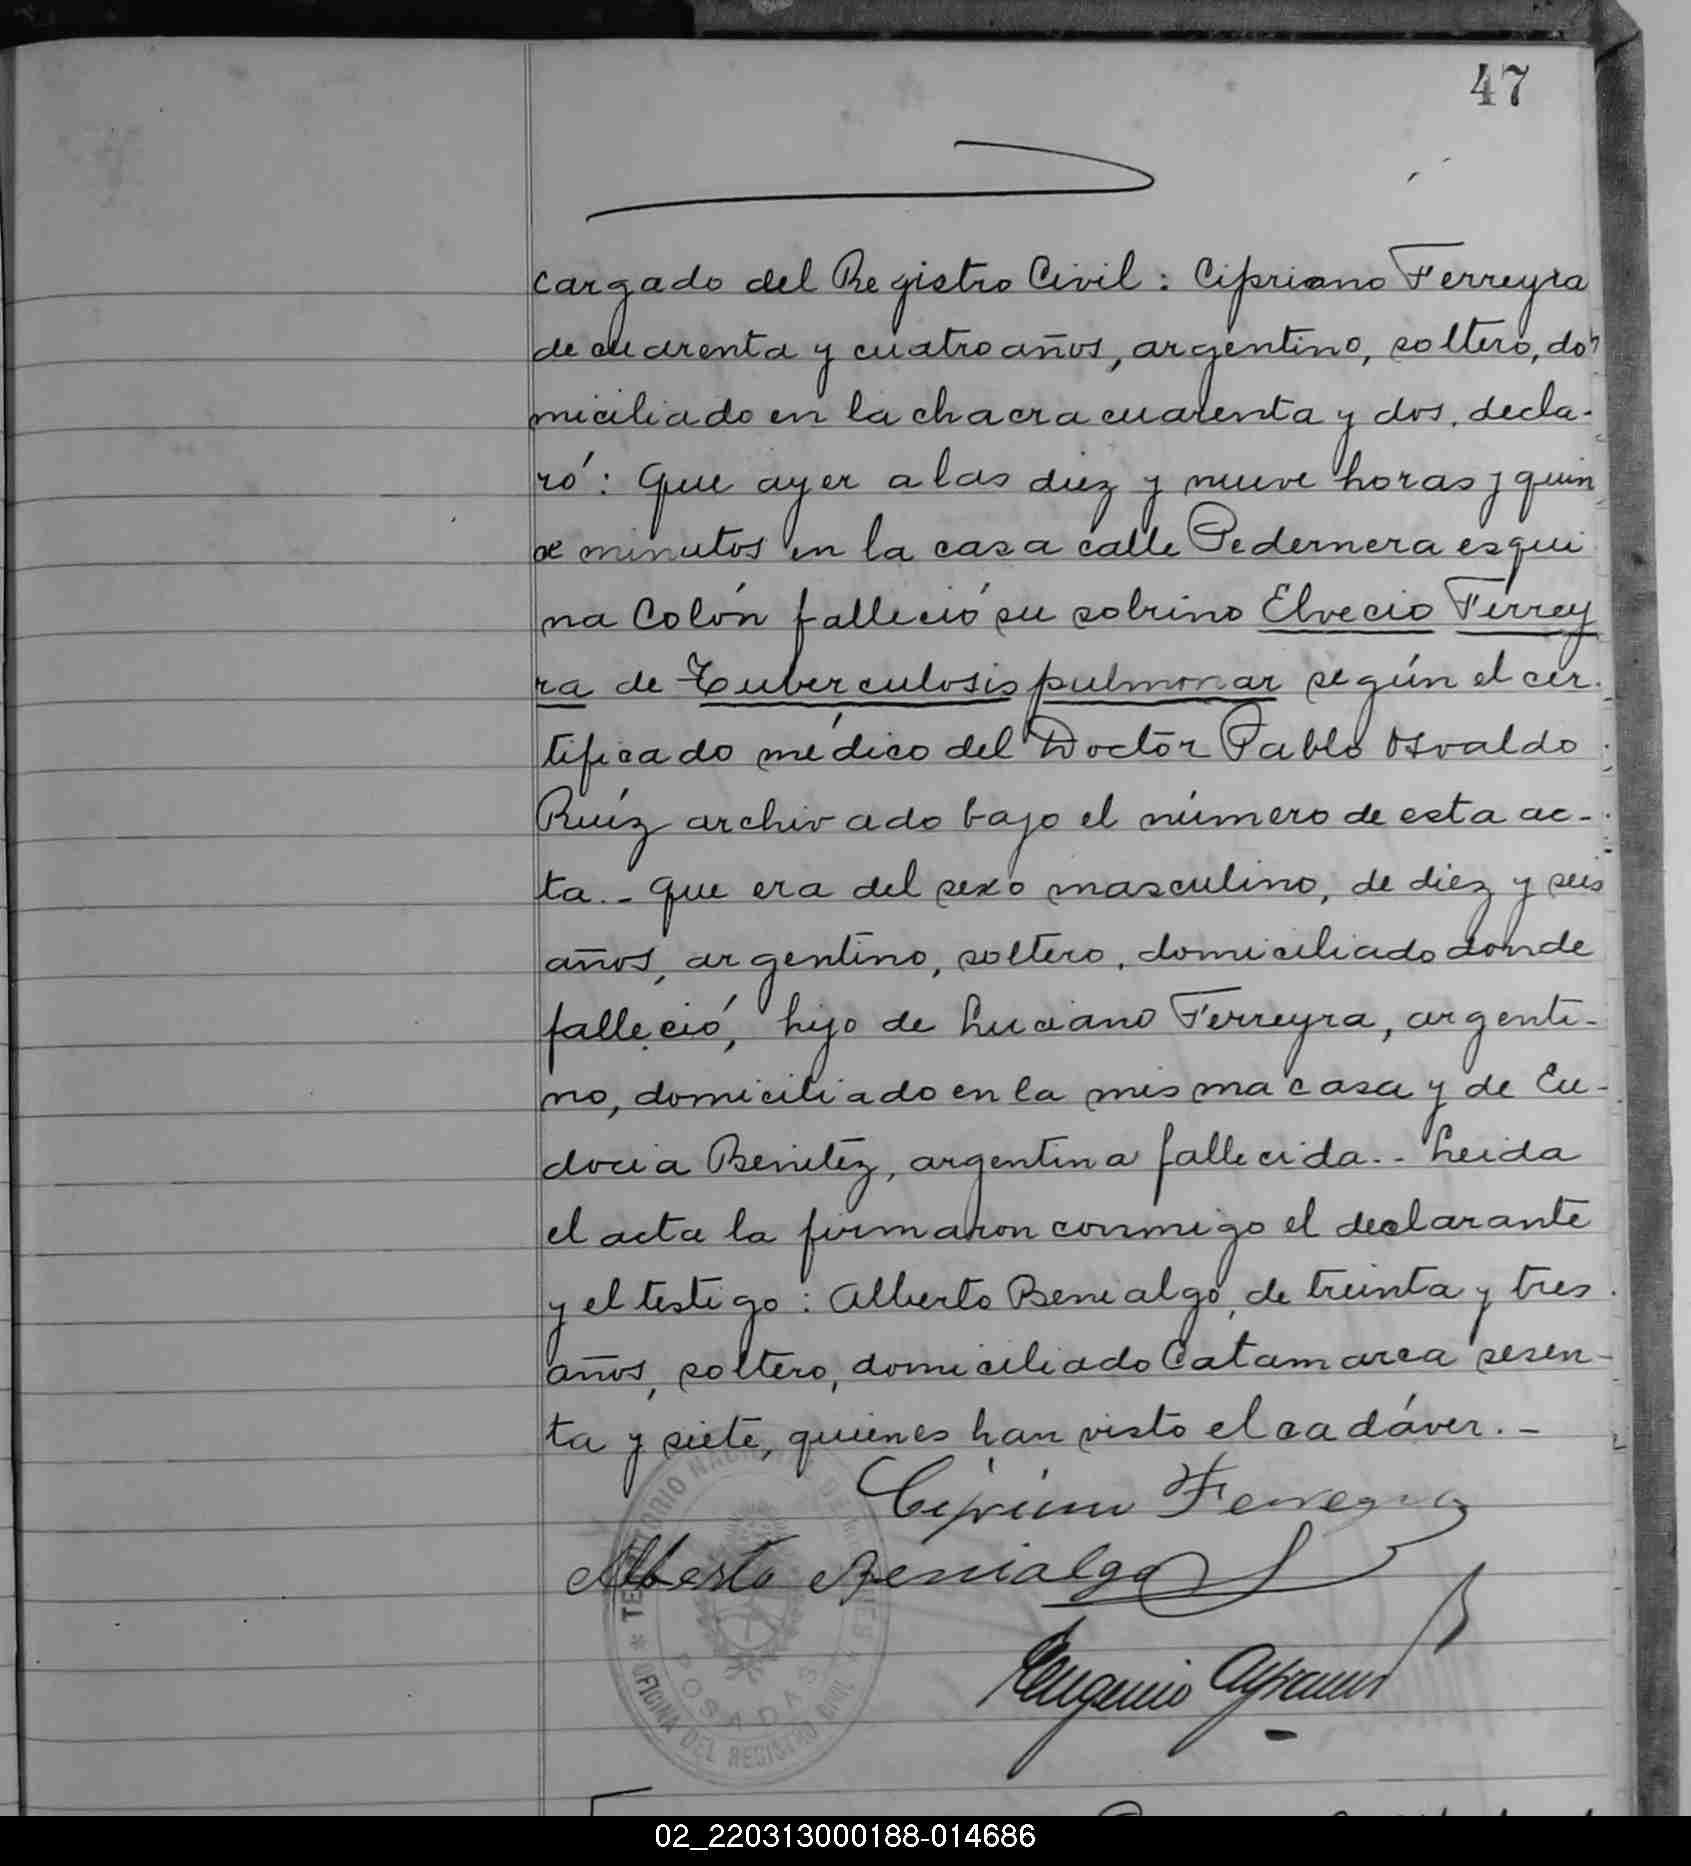 47
cargado del Registro Civil: Cipriano Ferreyra
de cuarenta y cuatro años, argentino, soltero, do
miciliado en la chacra cuarenta y dos, decla-
ró: Que ayer a las diez y nueve horas y quin
ce minutos en la casa calle Pedernera esqui
na Colón falleció su sobrino Elvecio Ferrey
ra de Tuberculosis pulmonar según el cer-
tificado médico del Doctor Pablo Osvaldo
Ruíz archivado bajo el número de esta ac-
ta.- Que era del sexo masculino, de diez y seis
años, argentino, soltero, domiciliado donde
falleció, hijo de Luciano Ferreyra, argenti-
no, domiciliado en la misma casa y de Eu-
docia Benitez, argentina fallecida.- Leida
el acta la firmaron conmigo el declarante
y el testigo: Alberto Benialgo, de treinta y tres
años, soltero, domiciliado Catamarca sesen-
ta y siete, quienes han visto el cadáver.-
Cipriano Ferreyra
Alberto Benialgo
Eugenio
TERRITORIO NACIONAL DE MISIONES
POSADAS
OFICINA DEL REGISTRO CIVIL
02_220313000188-014686